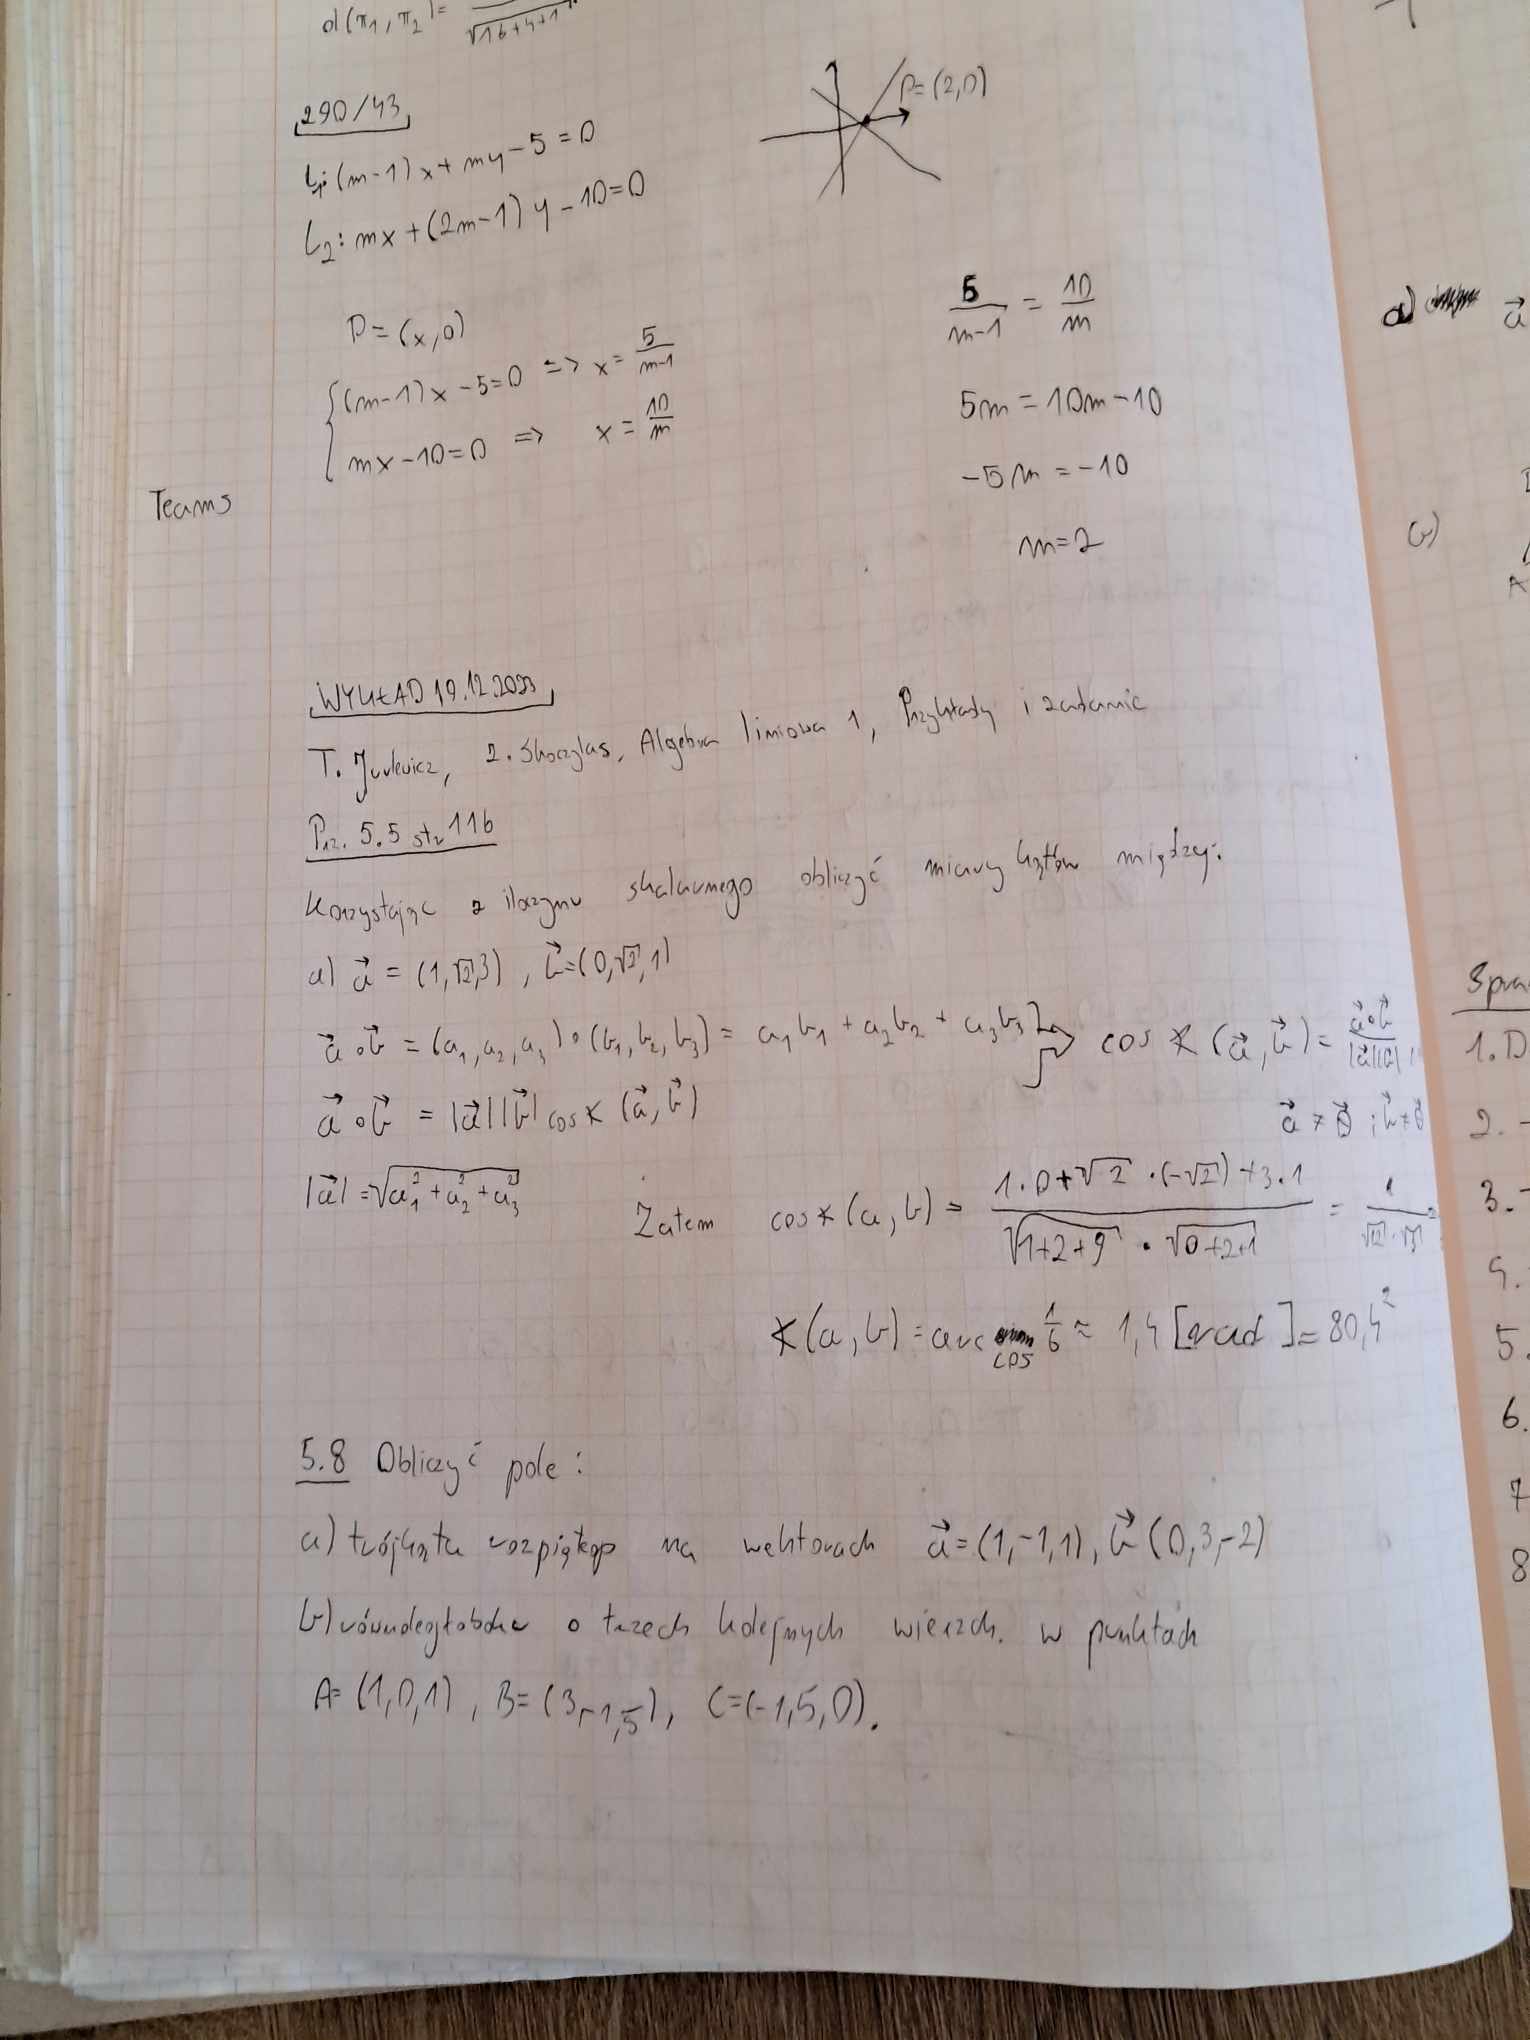 d(π₁, π₂)= √16+4+1
290/43
P=(2,0)
L₁: (m-1)x + my - 5 = 0
L₂: mx + (2m-1)y - 10 = 0
P = (x,0)
(m-1)x - 5 = 0 => x = 5/(m-1)
mx - 10 = 0 => x = 10/m
5/(m-1) = 10/m
5m = 10m - 10
-5m = -10
m = 2
Teams
WYKŁAD 19.12.2023
T. Jurlewicz, Z. Skoczylas, Algebra liniowa 1, Przykłady i zadania
Prz. 5.5 str 116
Korzystając z iloczynu skalarnego obliczyć miary kątów między:
a) a⃗ = (1,√2,3), b⃗=(0,√2,1)
a⃗ ∘ b⃗ = (a₁, a₂, a₃) ∘ (b₁, b₂, b₃) = a₁b₁ + a₂b₂ + a₃b₃ => cos ∢ (a⃗, b⃗) = a⃗∘b⃗/|a⃗||b⃗|
a⃗ ∘ b⃗ = |a⃗||b⃗| cos ∢ (a⃗, b⃗)
a⃗ ≠ 0⃗ i b⃗ ≠ 0⃗
|a⃗| = √(a₁² + a₂² + a₃²)
Zatem cos ∢ (a, b) = (1·0+√2·(-√2)+3·1)/(√1+2+9 · √0+2+1) = 1/(√12·√3) =
∢(a, b) = arc cos 1/6 ≈ 1,4 [rad] = 80,4°
5.8 Obliczyć pole:
a) trójkąta rozpiętego na wektorach a⃗=(1,-1,1), b⃗ (0,3,-2)
b) równoległoboku o trzech kolejnych wierzch. w punktach
A= (1,0,1), B= (3,-1,5), C=(-1,5,0).
a) a⃗
b)
A
Spra
1. D
2.
3.
4.
5.
6.
7
8